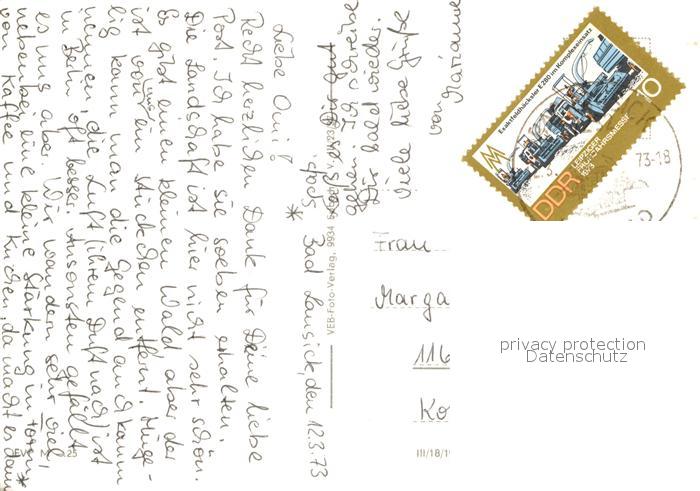 Bad Lausick, den 12.3.73
Liebe Omi!
Recht herzlichen Dank für Deine liebe
Post. Ich habe sie soeben erhalten.
Die Landschaft ist hier nicht sehr schön.
Es gibt einen kleinen Wald aber der
ist vom ein Stückchen entfernt. Hüge-
lig kann man die Gegend auch kaum
nennen, die Luft (ihrem Duft nach) ist
in Bln. oft besser. Ansonsten gefällt
es mir aber. Wir wandern sehr viel,
nebenbei eine kleine Stärkung in Form
von Kaffee und Kuchen, da macht es dann
gehen. Ich schreibe
Dir bald wieder.
Viele liebe Grüße
von Marianne
VEB-Foto-Verlag, 9934
III/18/1
Frau
Marga
116
Ko
Exaktfeldhäcksler E 280 im Komplexeinsatz
LEIPZIGER
FRÜHJAHRSMESSE
1973
DDR
10
73-18
privacy protection
Datenschutz